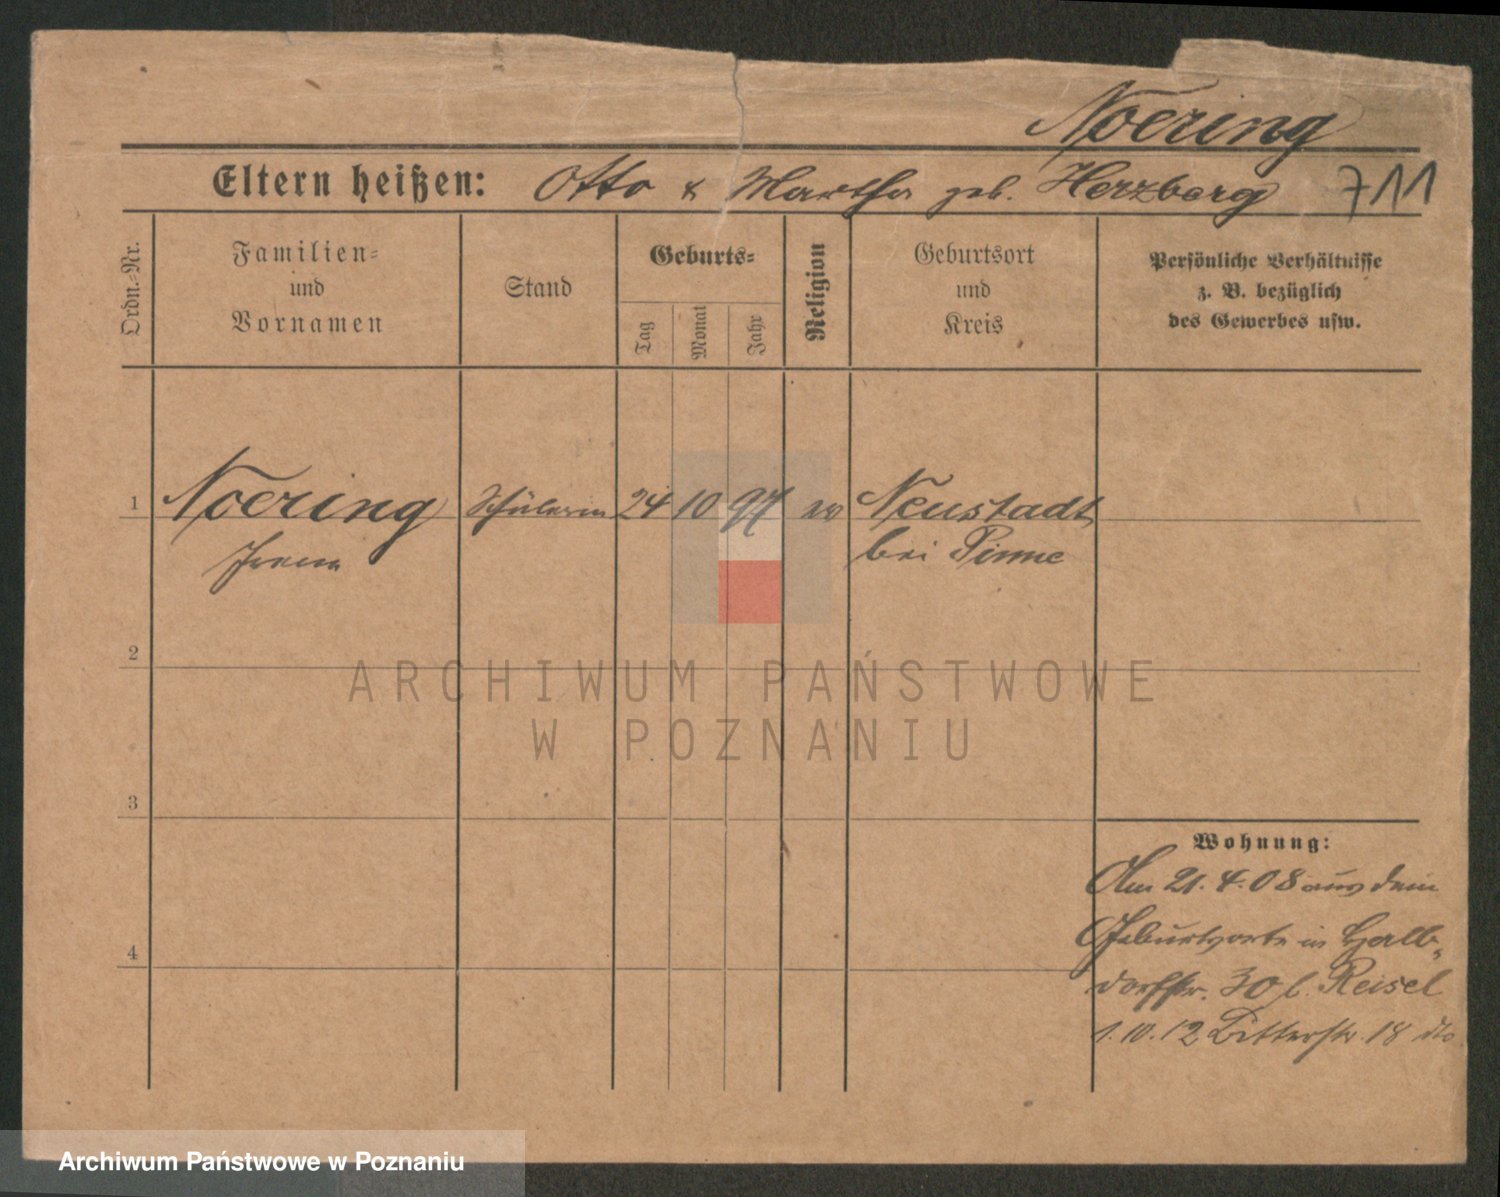 Noering
Eltern heißen: Otto & Martha geb. Herzberg 711
Ordn.-Nr.
Familien=
und
Vornamen
Stand
Geburts=
Tag
Monat
Jahr
Religion
Geburtsort
und
Kreis
Persönliche Verhältnisse
z. B. bezüglich
des Gewerbes usw.
1 Noering Schülerin 24 10 97 ev Neustadt
Irene bei Pinne
2
3
4
Wohnung:
Am 21.4.08 aus dem
Geburtsorte in Halb-
dorfstr. 30 b. Reisel
1.10.12 Ritterstr. 18 dto
ARCHIWUM PAŃSTWOWE
W POZNANIU
Archiwum Państwowe w Poznaniu